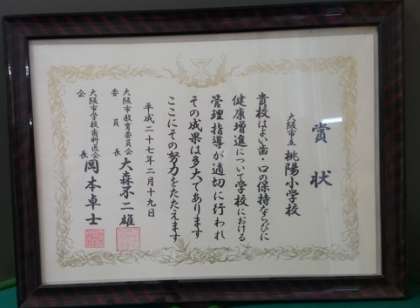 賞状
大阪市立 桃陽小学校
貴校はよい歯・口の保持ならびに
健康増進について学校における
管理指導が適切に行われ
その成果は多大であります
ここにその努力をたたえます
平成二十七年二月十九日
大阪市教育委員会
委員長 大森不二雄
大阪市学校歯科医会
会長 岡本卓士